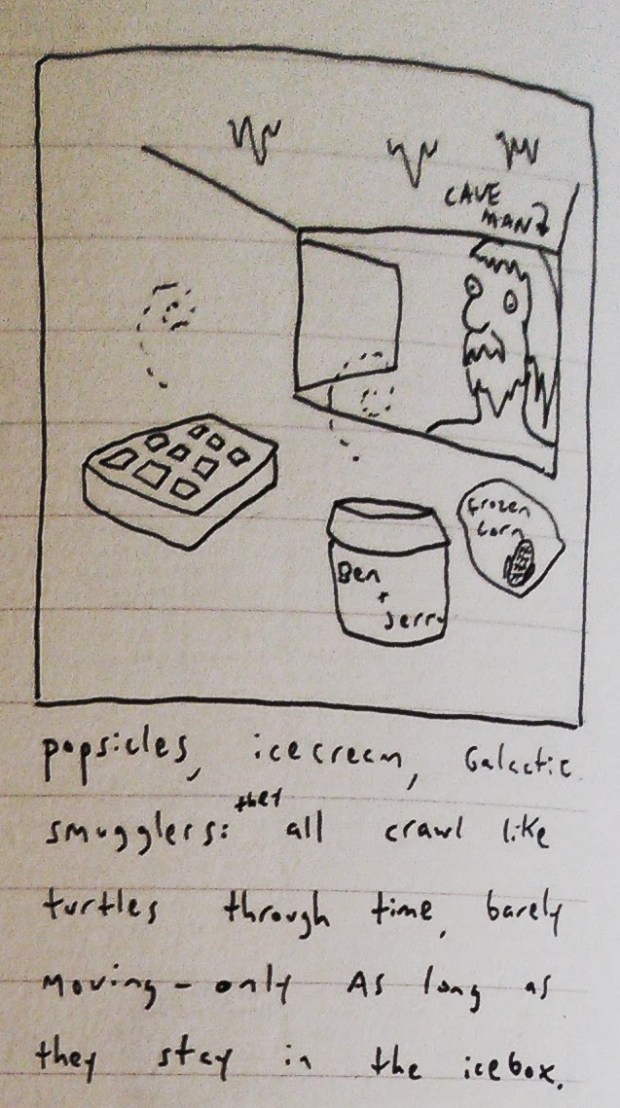 CAVE
MAN
Ben
+
Jerry
frozen
corn
popsicles, icecream, Galactic
smugglers: they all crawl like
turtles through time, barely
moving - only As long as
they stay in the icebox.